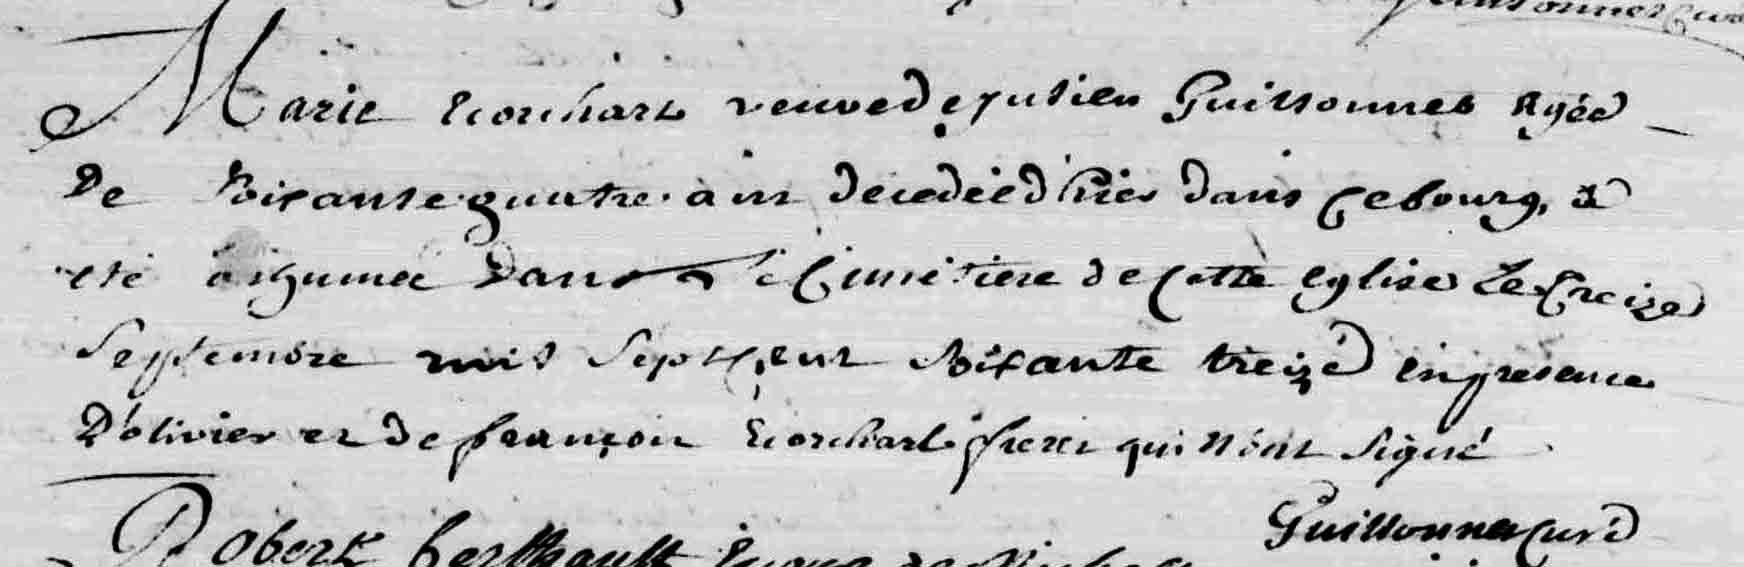 Guillonnet Curé
Marie Ecorchart veuve de Julien Guillonnet Agée
De Soixante quatre ans decedée d'hier dans Ce bourg, a
eté inhumée dans le Cimetiere de Cette eglise Le Treize
Septembre mil Sept Cent Soixante treize en presence
D'olivier et de françois Ecorchart freres qui N'ont Signé
Guillonnet Curé
Robert berthault Epoux de